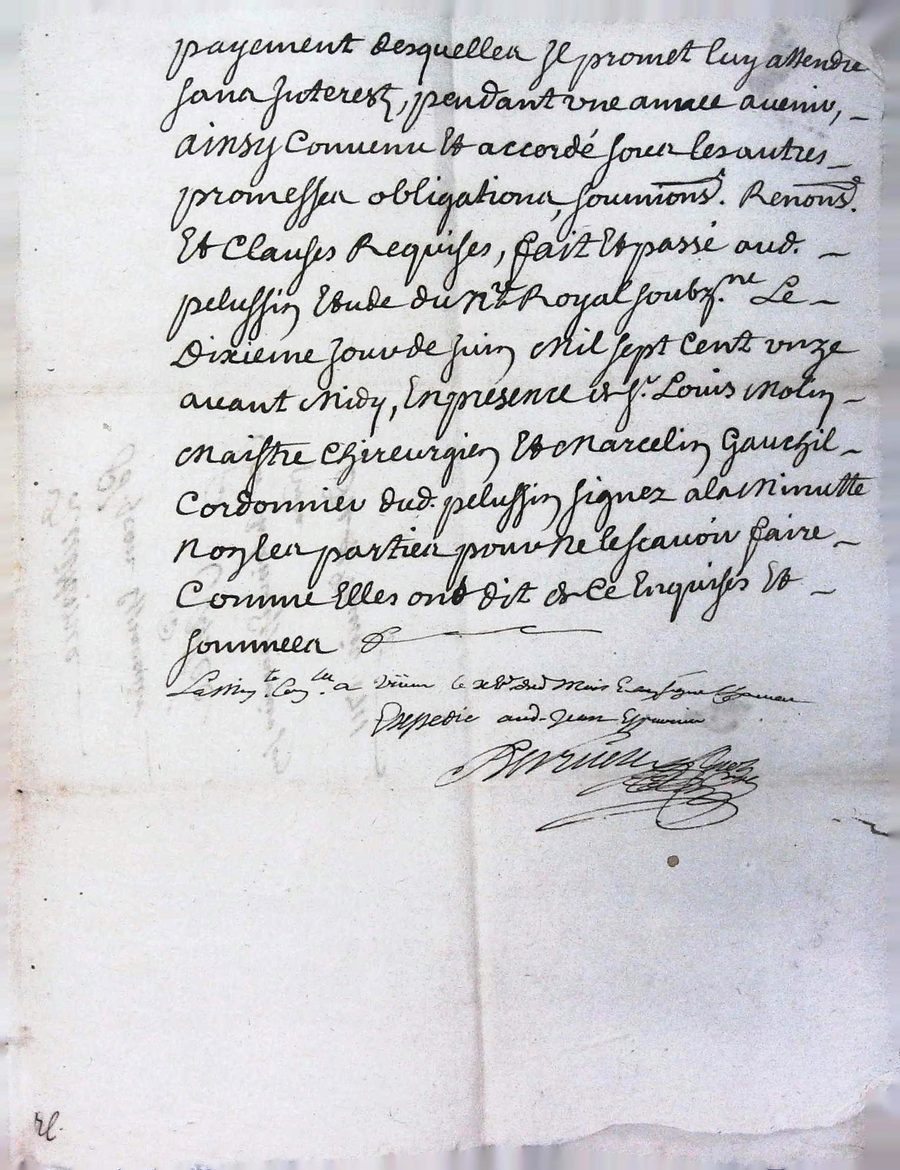 payement desquelles Il promet luy attendre
sans Interest, pendant une année avenir,
ainsy Convenu Et accordé sous les autres
promesses obligations, soumions. Renons.
Et Clauses Requises, fait Et passé aud.
pelussin Etude du Nre Royal soubz.ne Le
Dixieme Jour de Juin Mil sept Cent unze
avant Midy, En presence de Sr. Louis Molin
Maistre Chireurgien Et Marcelin Gauchil
Cordonnier dud. pelussin signez a la Minutte
Non les parties pour ne le scavoir faire
Comme Elles ont dit de Ce Enquises Et
sommees
La min.te Con.lee a
Expedie aud. Jean